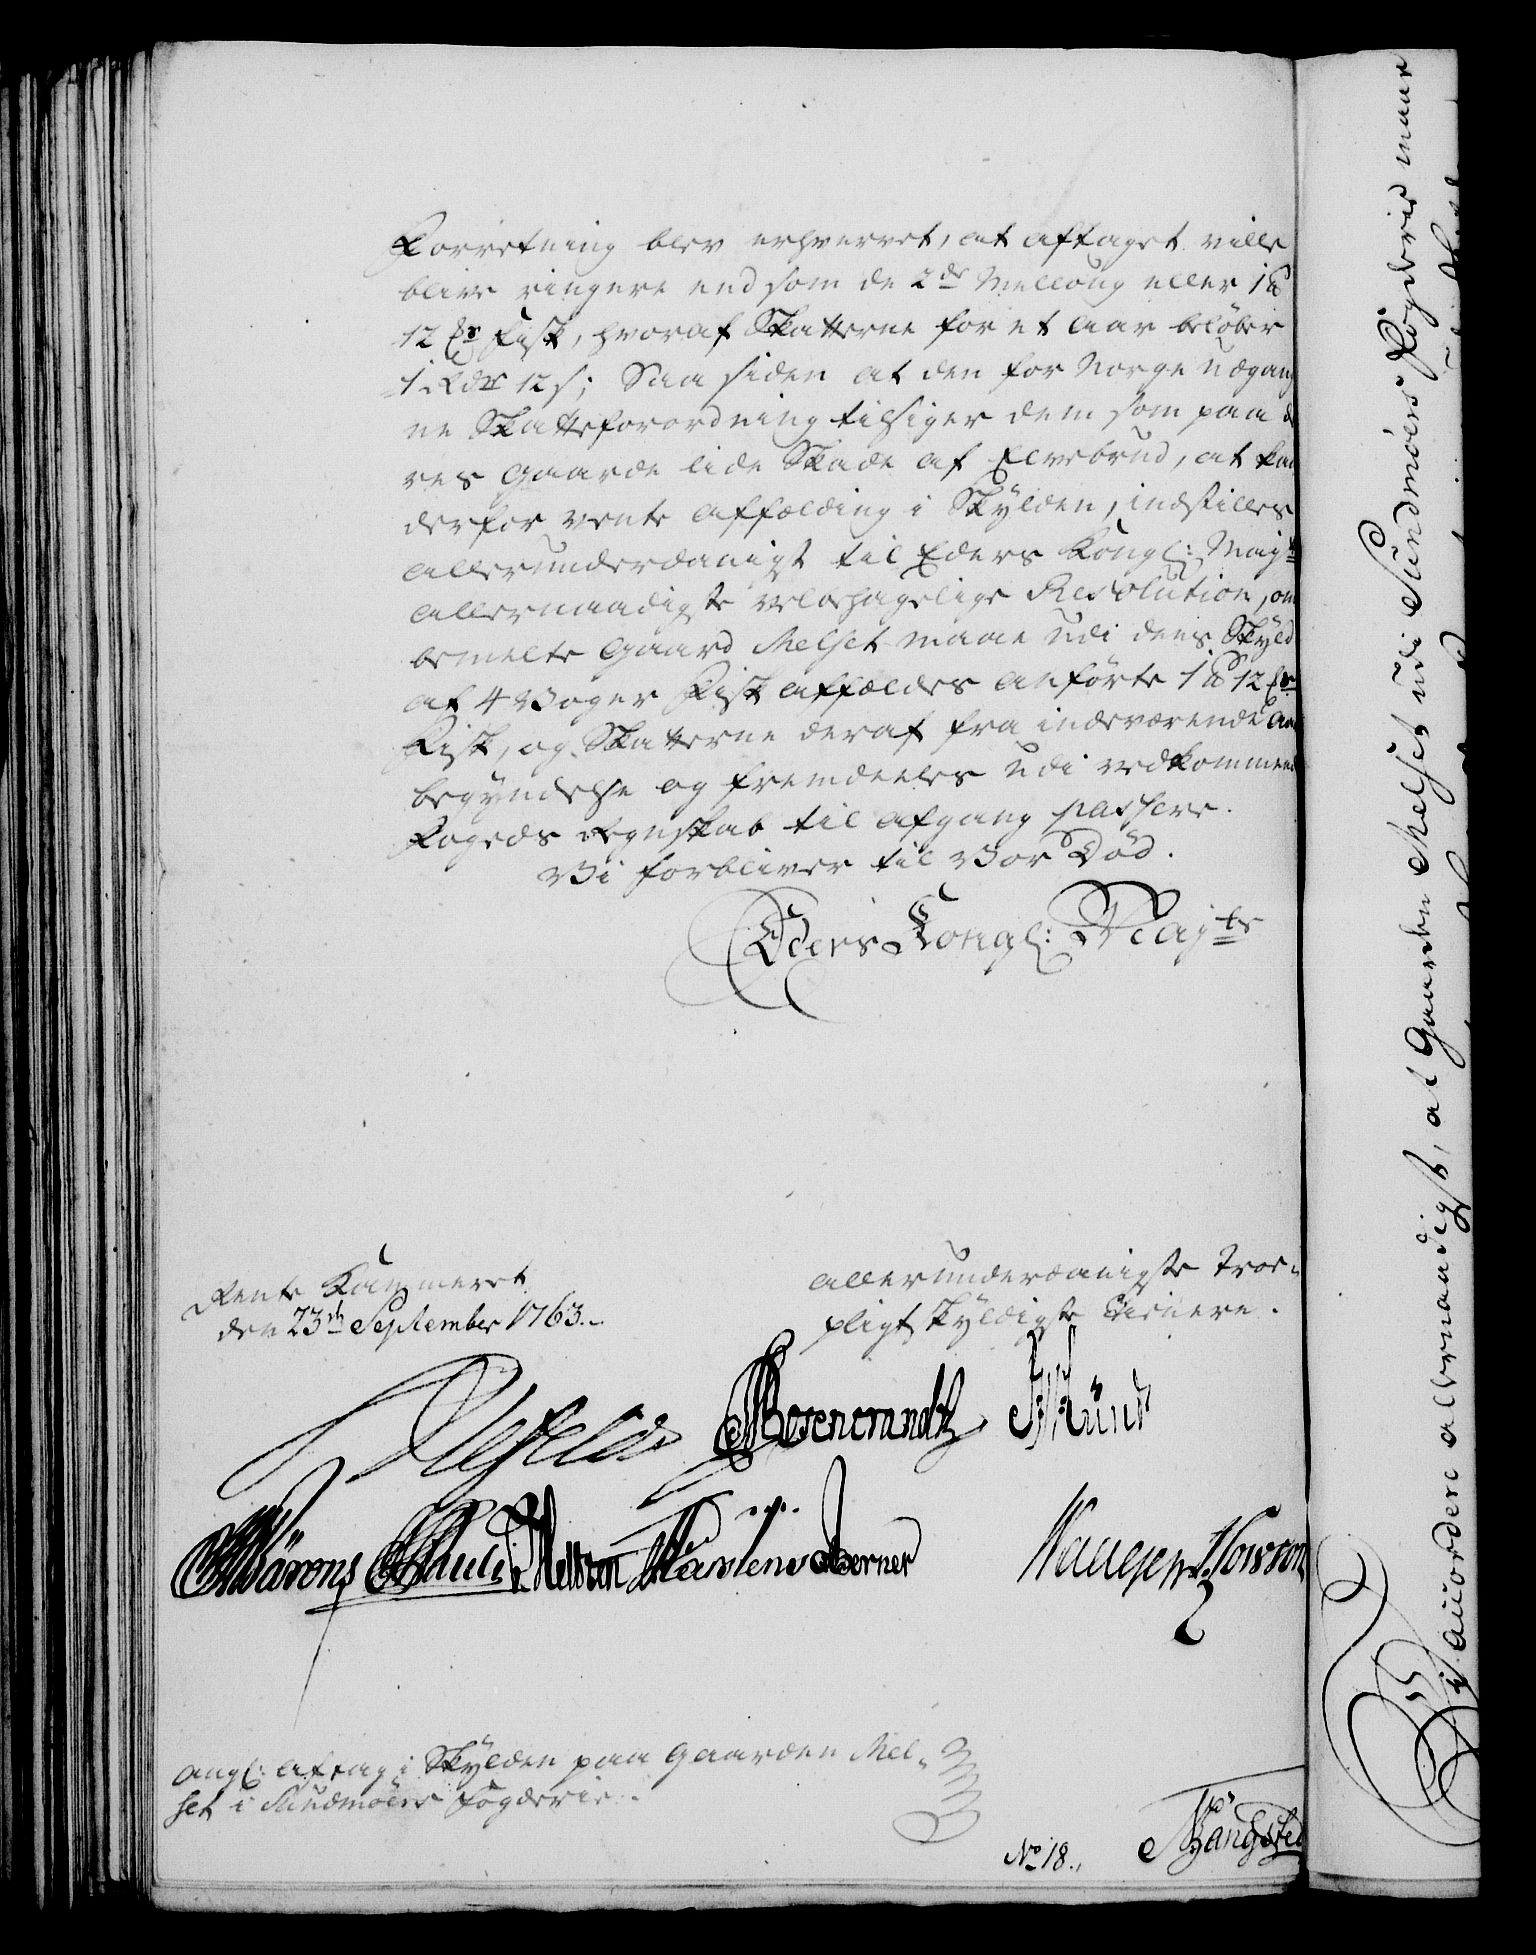 Forretning blev erhvervet, at aftaget ville
blive ringere end som de 2de Mellong eller 1 
12 Fisk, hvoraf Skatterne for et Aar beløber
1 Rdr 12 s; Saa siden at den for Norge udgang
ne Skatteforordning tilsiger dem som paa de
res Gaarde lide Skade af Elvebrud, at kan
derfor vente affælding i Skylden, indstilles
allerunderdanigst til Eders Kongl: Majts
allernaadigste velbehagelige Resolution, om
bemelte Gaard Melset maae udi dens Skyld
af 4 Voger Fisk affældes anførte 1 12
Fisk, og Skatterne deraf fra indeværende Aars
begyndelse og fremdeeles udi vedkommende
Fogeds Regnskab til afgang passere.
Vi forbliver til Vor Død.
Eders Kongl: Majts
Rente Kammeret
den 23de September 1763.
allerunderdanigste troe-
pligt skyldigste Tienere.
Rosencrandtz
Wärens
Berner
angl: aftag i Skylden paa Gaarden Mel-
set i Sundmøers Fogderie.
No 18.
Bangsted
Vi auordere allernaadigst, at Gaarden Melset udi Sundmøers Fogderie maae